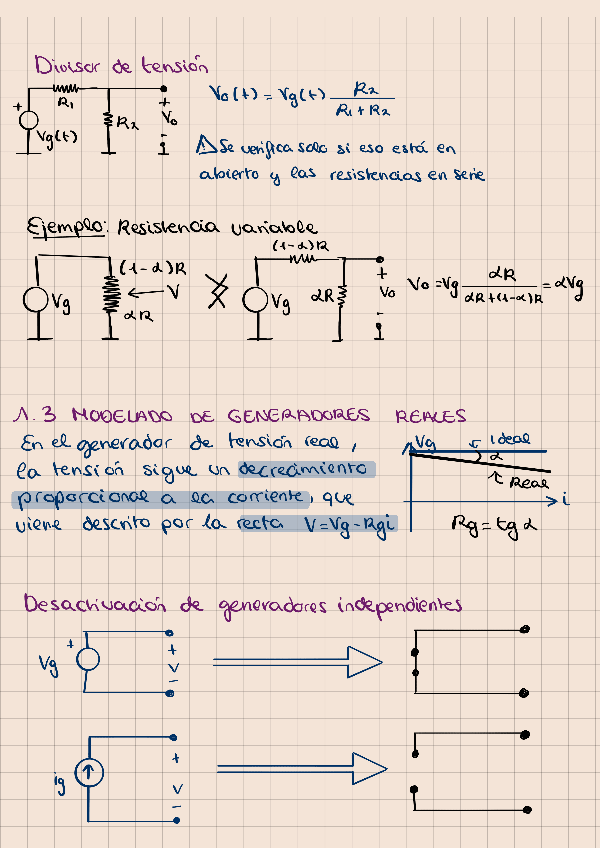 Divisor de tensión
R₁
+
R₂
+
Vo
-
Vg(t)
Vo(t) = Vg(t) R₂ / (R₁ + R₂)
⚠ Se verifica solo si eso está en
abierto y las resistencias en serie
Ejemplo: Resistencia variable
Vg
(1-α)R
V
αR
(1-α)R
Vg
αR
+
Vo
-
Vo = Vg αR / (αR+(1-α)R) = αVg
1.3 MODELADO DE GENERADORES REALES
En el generador de tensión real,
la tensión sigue un decrecimiento
proporcional a la corriente, que
viene descrito por la recta V=Vg-Rgi
Vg
Ideal
α
Real
i
Rg = tg α
Desactivación de generadores independientes
Vg
+
+
V
-
ig
+
V
-